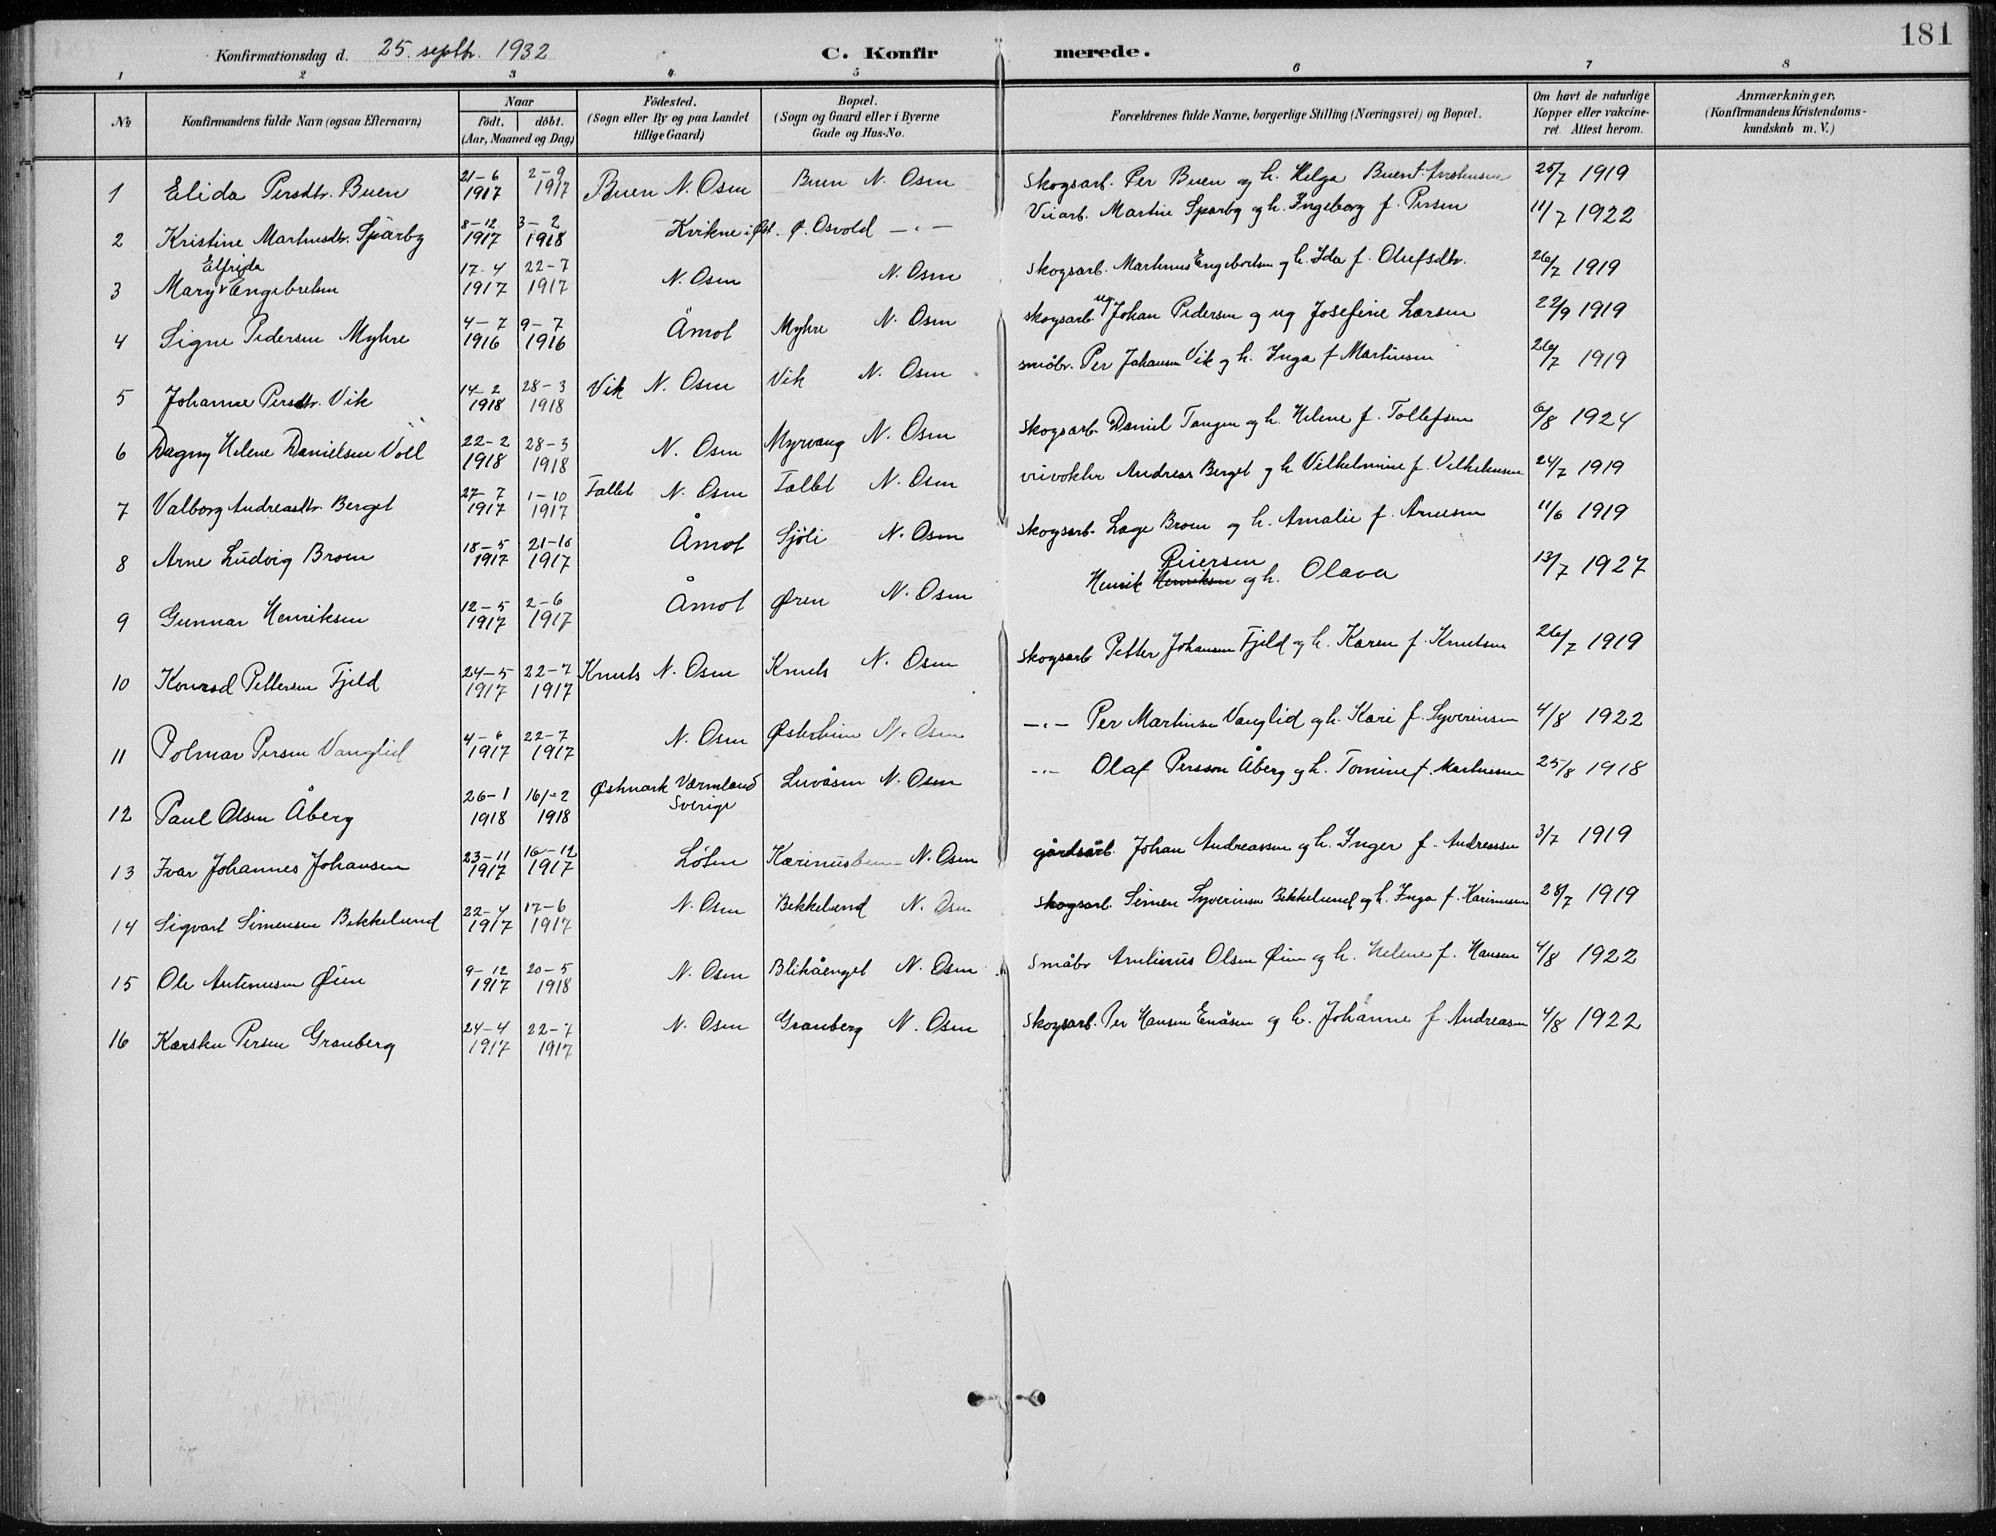 181
Konfirmationsdag d. 25. septbr. 1932 C. Konfirmerede.
1 2 3 4 5 6 7 8
No Konfirmandens fulde Navn (ogsaa Efternavn) Naar födt. döbt. (Aar, Maaned og Dag) Födested. (Sogn eller By og paa Landet tillige Gaard) Bopæl. (Sogn og Gaard eller i Byerne Gade og Hus-No. Forældrenes fulde Navne, borgerlige Stilling (Næringsvei) og Bopæl. Om havt de naturlige Kopper eller vakcineret. Attest herom. Anmærkninger. (Konfirmandens Kristendomskundskab m. V.)
1 Elida Persdtr. Buen 21-6 1917 2-9 1917 Buen N. Osen Buen N. Osen Skogsarb. Per Buen og h. Helga Buen f. 25/7 1919
2 Kristine Martinsdtr. Sparby 8-12 1917 3-2 1918 Kvikne i Øst. Ø. Osvold -"- Veiarb. Martin Sparby og h. Ingeborg f. Persen 11/7 1922
3 Mary Elfrida Engebretsen 17-4 1917 22-7 1917 N. Osen N. Osen Skogsarb. Martinus Engebretsen og h. Ida f. Olufsdtr. 26/7 1919
4 Signe Pedersen Myhre 4-7 1916 9-7 1916 Åmot Myhre N. Osen skogsarb. ug Johan Pedersen og ug Josefine Larsen 22/9 1919
5 Johanne Persdtr. Vik 14-2 1918 28-3 1918 Vik N. Osen Vik N. Osen småbr. Per Johansen Vik og h. Inga f Martinsen 26/7 1919
6 Dagny Helene Danielsen Voll 22-2 1918 28-3 1918 N. Osen Myrvang N. Osen Skogsarb. Daniel Tangen og h. Helene f. Tollefsen 6/8 1924
7 Valborg Andreasdtr. Berget 27-7 1917 1-10 1917 Fallet N. Osen Fallet N. Osen veivokter Andreas Berget og h Vilhelmine f. Vilhelmsen 24/7 1919
8 Arne Ludvig Broen 18-5 1917 21-10 1917 Åmot Sjøli N. Osen Skogsarb. Lage Broen og h. Amalie f. Arnesen 11/6 1919
9 Gunnar Henriksen 12-5 1917 2-6 1917 Åmot Øren N. Osen Henrik Henriksen Reiersen og h. Olava 13/7 1927
10 Konrad Pettersen Fjeld 24-5 1917 22-7 1917 Knuts N. Osen Knuts N. Osen Skogsarb Petter Johansen Fjeld og h. Karen f. Knutsen 26/7 1919
11 Polmar Persen Vanglid 4-6 1917 22-7 1917 N. Osen Østerheim N. Osen -"- Per Martinsen Vanglid og h. Kari f. Syverinsen 4/8 1922
12 Paul Olsen Åberg 26-1 1918 16/-2 1918 Østmark Værmland Sverige Luvåsen N. Osen -"- Olaf Persson Åberg og h. Tomine f. Martinsen 25/8 1918
13 Ivar Johannes Johansen 23-11 1917 16-12 1917 Løten N. Osen gårdsarb. Johan Andreassen og h. Inger f. Andreassen 3/7 1919
14 Sigvart Simensen Bekkelund 22-4 1917 17-6 1917 N. Osen Bekkelund N. Osen Skogsarb. Simen Syverinsen Bekkelund og h. Inga f. Karinusen 28/7 1919
15 Ole Antinusen Øien 9-12 1917 20-5 1918 N. Osen Blikåenget N. Osen Småbr Antinus Olsen Øien og h. Helene f. Hansen 4/8 1922
16 Karsten Persen Granberg 24-4 1917 22-7 1917 N. Osen Granberg N. Osen Skogsarb. Per Hansen Enåsen og h. Johanne f. Andreasen 4/8 1922